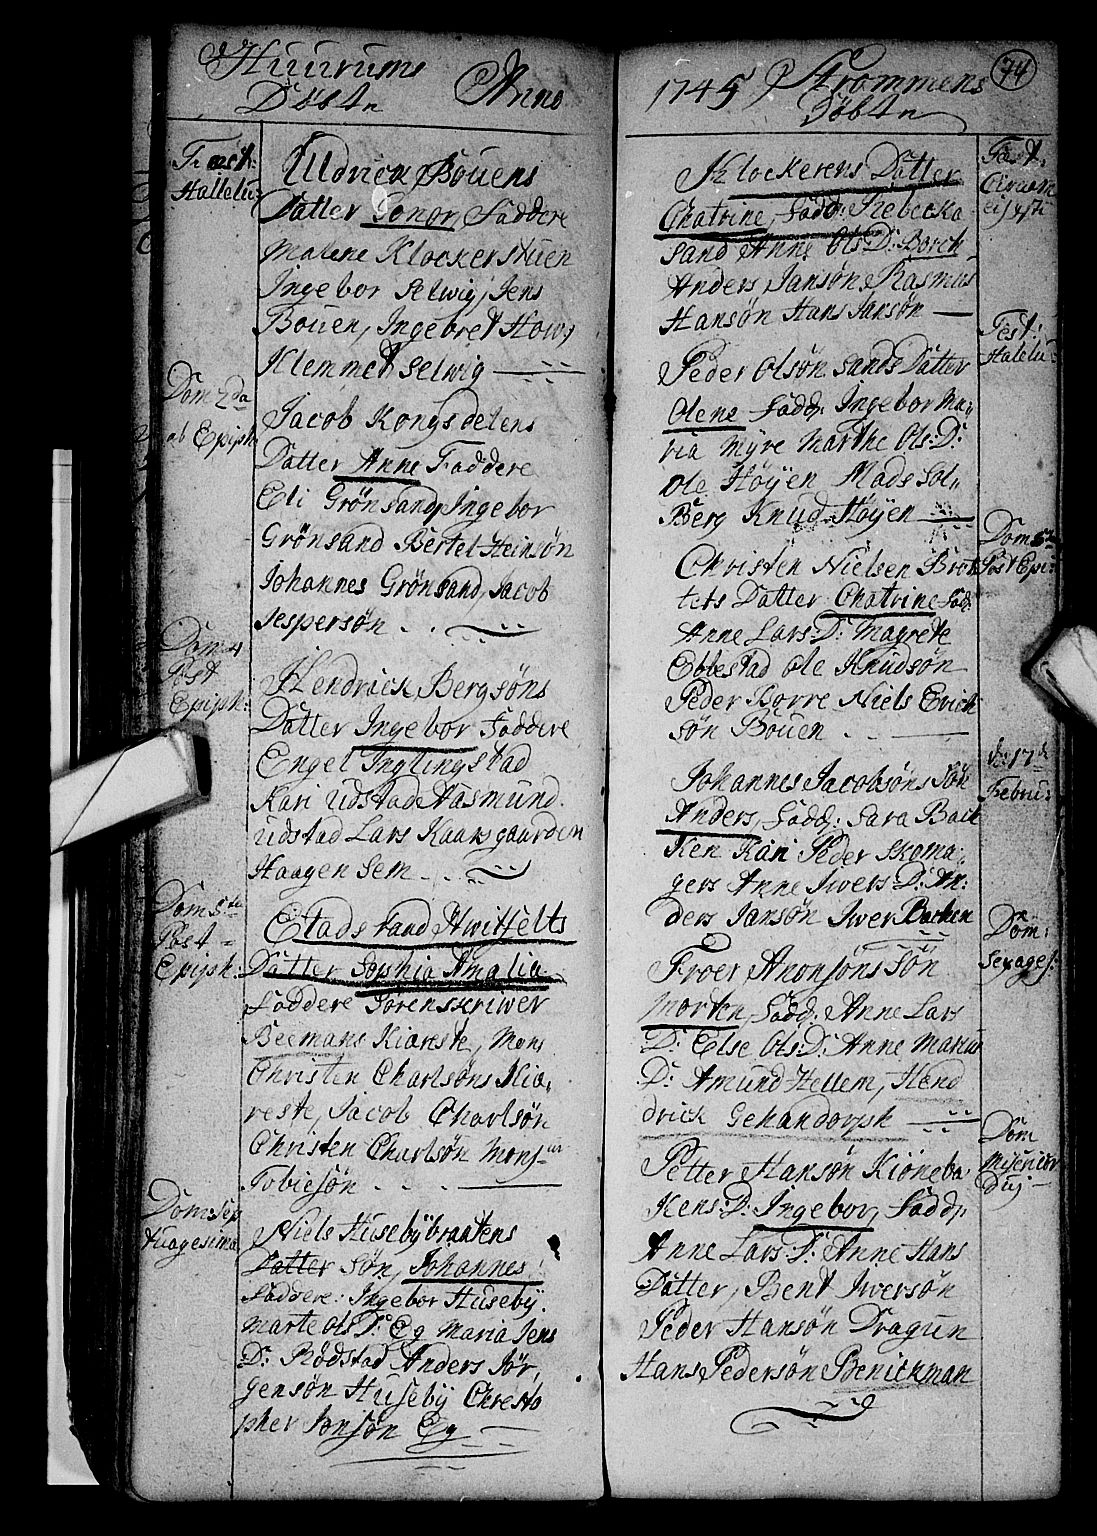 Huurums
Döbte Anno
Fest:
Hallelu:
Uldrick Bouens
Datter Gonor, Faddere
Malene Klockerstuen
Ingebor Selwig, Jens
Bouen, Ingebret Hows
Klemmet Selwig
Dom 2da
ab Epiph:
Jacob Kongsdelens
Datter Anne Faddere
Eli Grönsand, Ingebor
Grönsand Bertel Heinsön
Johannes Grönsand, Jacob
Jespersön
Dom 4
Post
Epiph:
Hendrick Bergsöns
Datter Ingebor Faddere
Engel Inglingstad
Kari Udstad Aasmund
Udstad Lars Kaarsgaarden
Haagen Sem
Dom 5te
Post
Epiph:
Stads Faud Hwitfelts
Datter Sophia Amalia
Faddere Sörenskriwer
Beemans Kiæreste, Mons
Christen Charlsöns Kiæ,
reste, Jacob Charlsön
Christen Charlsön Monsiur
Tobiesön
Dom: Sep
tuagesima
Niels Husebybraatens
Datter Sön, Johannes
Faddere: Ingebor Huseby
Marte Ols D: Eg Maria Jens
D: Rödstad Anders Jör,
gensön Huseby Christo
pher Jonsön Eg
1745 Strommens 74
Döbte
Klockerens Datter
Chatrine, Fadd: Rebecka
Sand Anne Ols D: Borch
Anders Jansön Rasmus
Hansön Hans Jansön
Fest:
Circum
cis: Xsti
Peder Olsön Sands Datter
Olene Fadd: Ingebor Ma,
ria Myre Marthe Ols: D:
Ole Höyen Mads Sol,
Berg Knud Höyen
Fest:
Halelu:
Christen Nielsen Brot
tets Datter Chatrine Fad:
Anne Lars: D: Magrete
Ebbestad Ole Knudsön
Peder Borre Niels Erich
sön Bouen
Dom 5te
Post Epi:
Johannes Jacobsöns Sön
Anders, Fadd: Sara Back
ken Kari Peder Skoma,
gers Anne Iwers D: An:
ders Jansön Iwer Backen
d: 17de
Febru:
Froer Aronsöns Sön
Morten, Fadd: Anne Lars
D: Else Ols: D: Anne Marius
D: Amund Hellem, Hend
drick Gehandorph
Dom:
Sexages:
Petter Hansön Kiöneba
kens: D: Ingebor, Fadd:
Anne Lars: D: Anne Hans
Datter, Bent Iwersön
Peder Hansön Dragun
Hans Pedersön Benickman
Dom
Misericor
dias